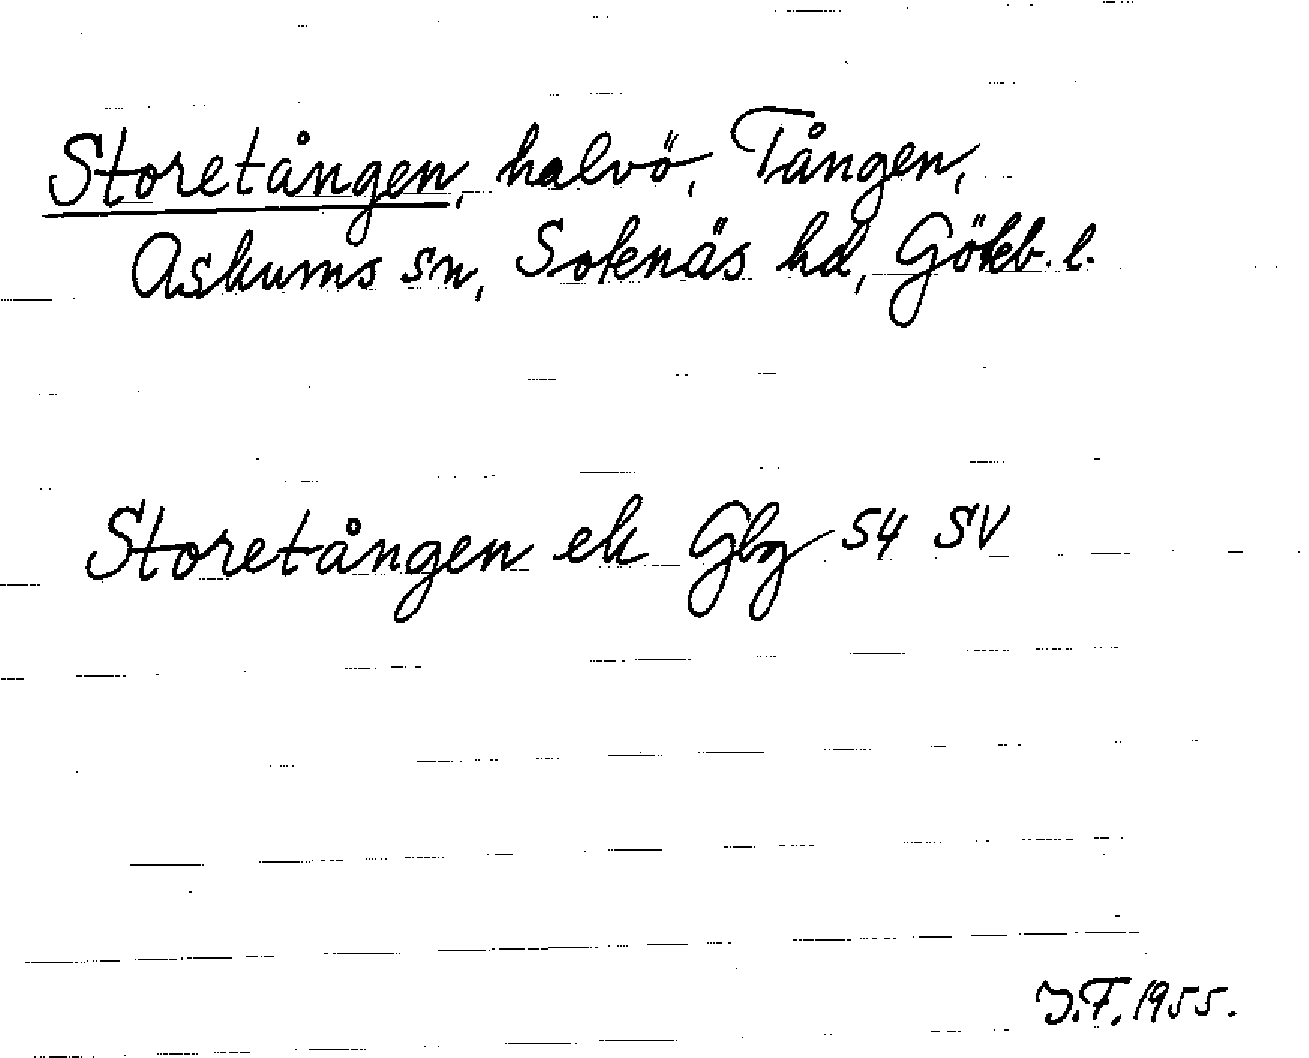 Storetången, halvö, Tången,
Askums sn, Sotenäs hd, Göteb. l.
Storetången ek Gbg S4 SV
J.F. 1955.